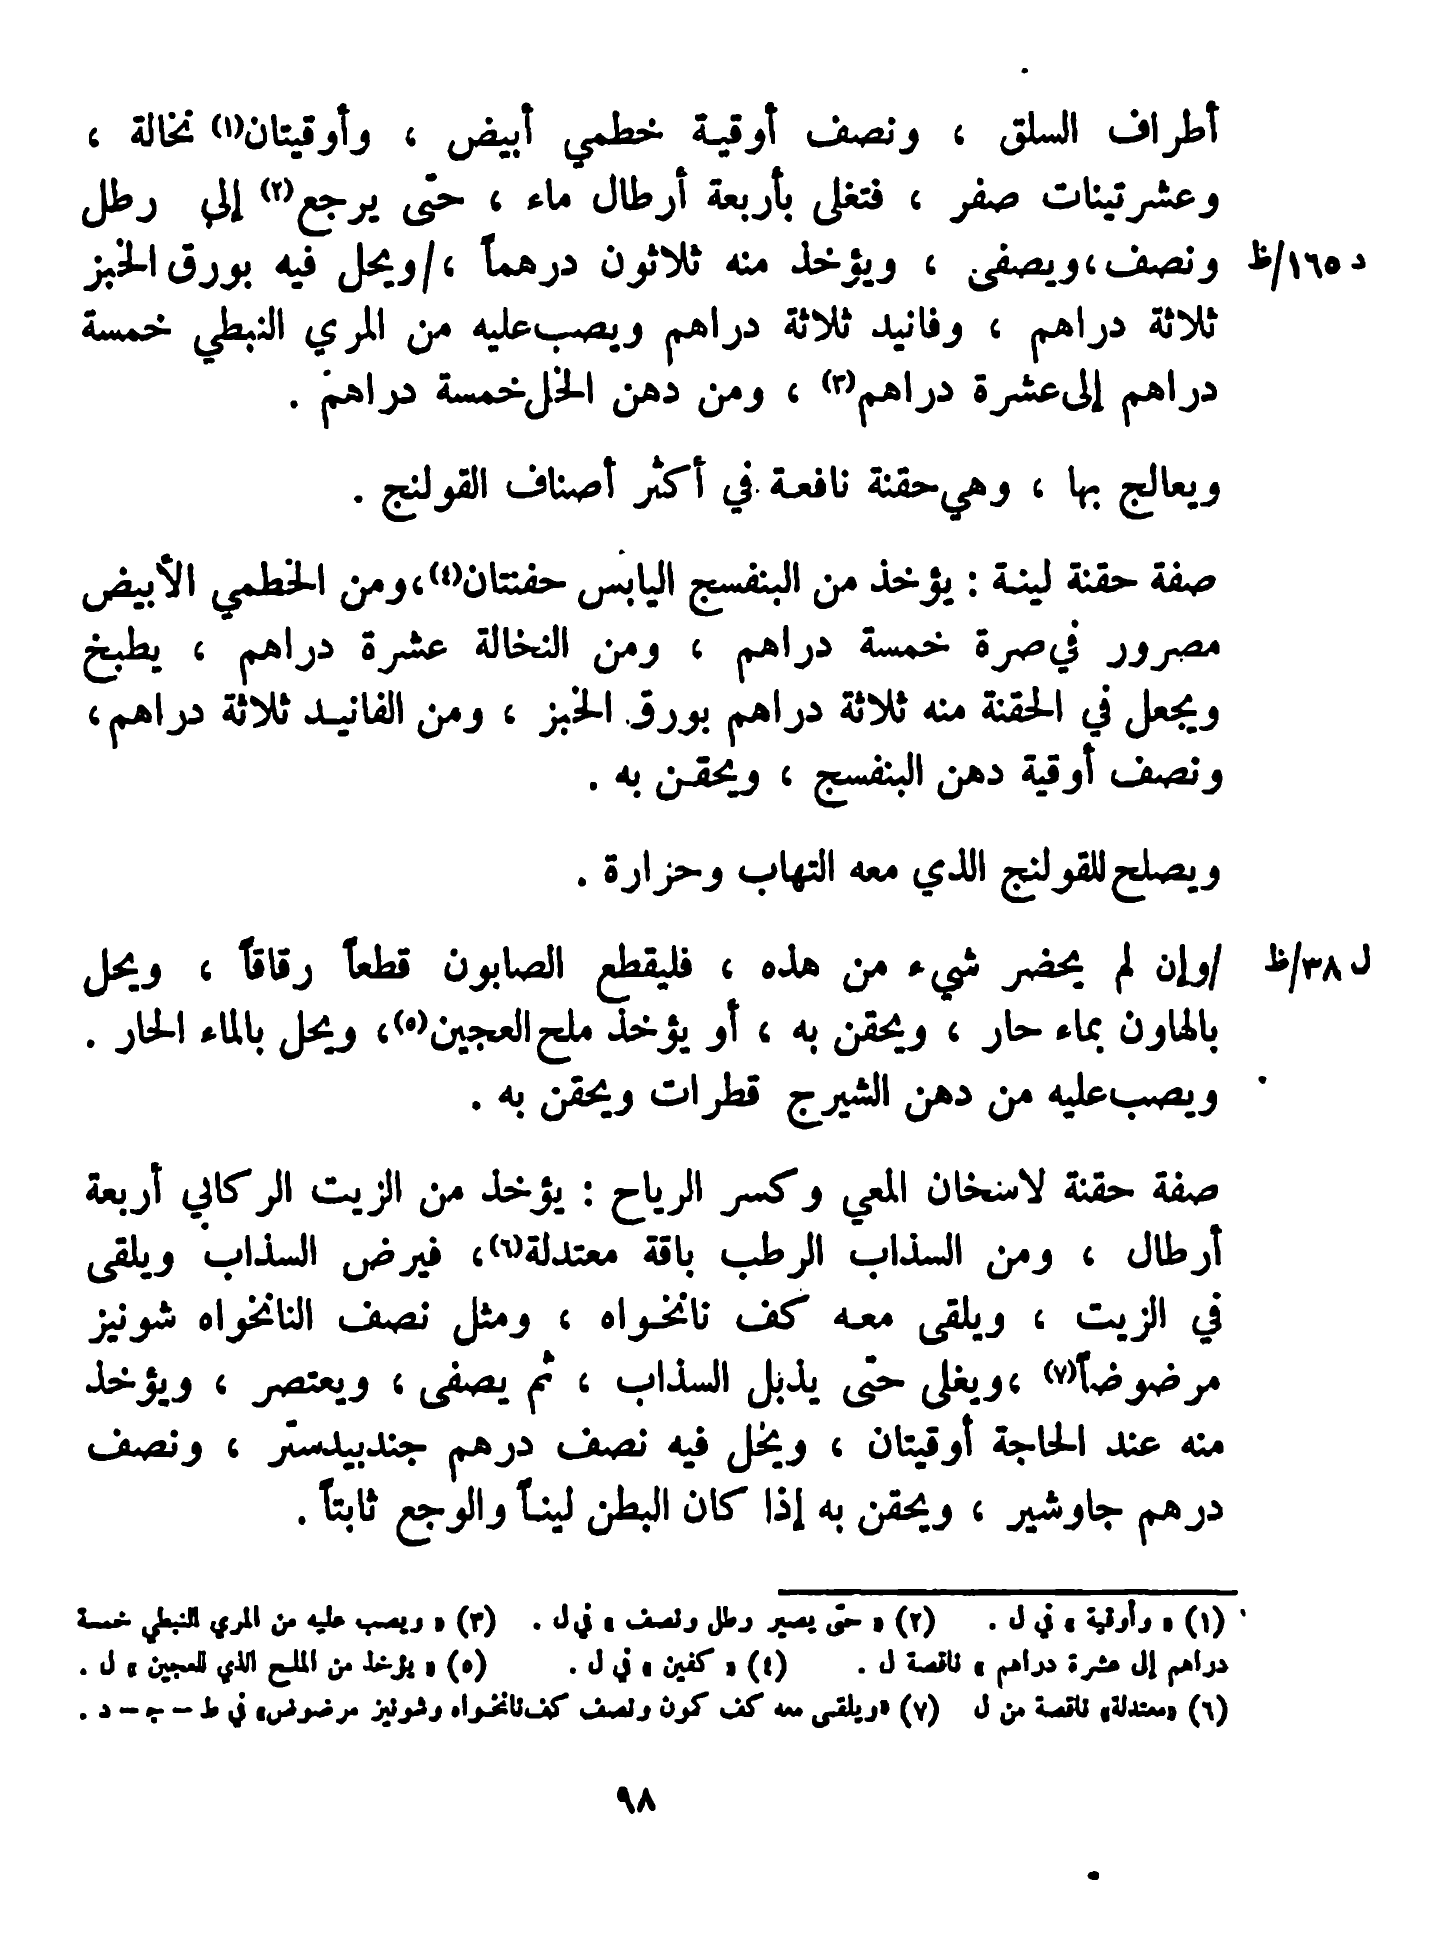 أطراف السلق ، ونصف أوقية خطمي أبيض ، وأوقيتان(١) نخالة ،
وعشرتينات صفر ، فتغلى بأربعة أرطال ماء ، حتّى يرجع(٢) إلى رطل
د ١٦٥/ظ ونصف،ويصفى ، ويؤخذ منه ثلاثون درهماً ،/ويحل فيه بورق الخبز
ثلاثة دراهم ، وفانيد ثلاثة دراهم ويصب عليه من المري النبطي خمسة
دراهم إلى عشرة دراهم(٣) ، ومن دهن الخل خمسة دراهم .
ويعالج بها ، وهي حقنة نافعة في أكثر أصناف القولنج .
صفة حقنة لينة : يؤخذ من البنفسج اليابس حفنتان(٤)،ومن الخطمي الأبيض
مصرور في صرة خمسة دراهم ، ومن النخالة عشرة دراهم ، يطبخ
ويجعل في الحقنة منه ثلاثة دراهم بورق الخبز ، ومن الفانيد ثلاثة دراهم،
ونصف أوقية دهن البنفسج ، ويحقن به .
ويصلح للقولنج الذي معه التهاب وحزارة .
ل ٣٨/ظ /وإن لم يحضر شيء من هذه ، فليقطع الصابون قطعاً رقاقاً ، ويحل
بالهاون بماء حار ، ويحقن به ، أو يؤخذ ملح العجين(٥)، ويحل بالماء الحار .
ويصب عليه من دهن الشيرج قطرات ويحقن به .
صفة حقنة لاسخان المعي وكسر الرياح : يؤخذ من الزيت الركابي أربعة
أرطال ، ومن السذاب الرطب باقة معتدلة(٦)، فيرض السذاب ويلقى
في الزيت ، ويلقى معه كف نانخواه ، ومثل نصف النانخواه شونيز
مرضوضاً(٧) ،ويغلى حتّى يذبل السذاب ، ثم يصفى ، ويعتصر ، ويؤخذ
منه عند الحاجة أوقيتان ، ويخل فيه نصف درهم جندبيدستر ، ونصف
درهم جاوشير ، ويحقن به إذا كان البطن ليناً والوجع ثابتاً .
(١) « وأوقية » في ل . (٢) « حتّى يصير رطل ونصف » في ل . (٣) « ويصب عليه من المري النبطي خمسة
دراهم إلى عشرة دراهم » ناقصة ل . (٤) « كفين » في ل . (٥) « يؤخذ من الملح الذي للعجين » ل .
(٦) «معتدلة» ناقصة من ل (٧) «ويلقى معه كف كمون ونصف كف نانخواه وشونيز مرضوض» في ط – ج – د .
٩٨